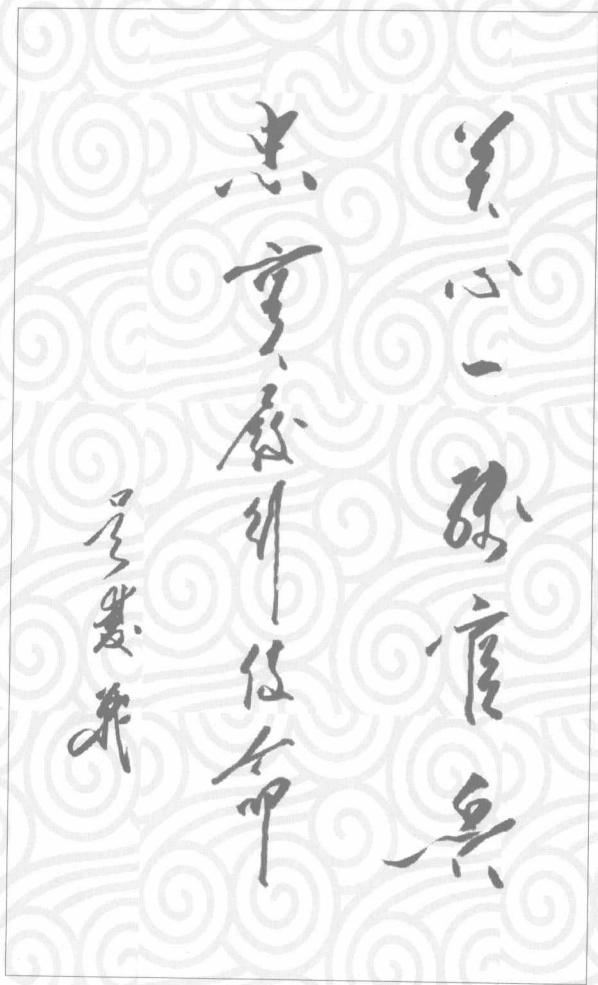 关心一线官兵
忠实履行使命
吴